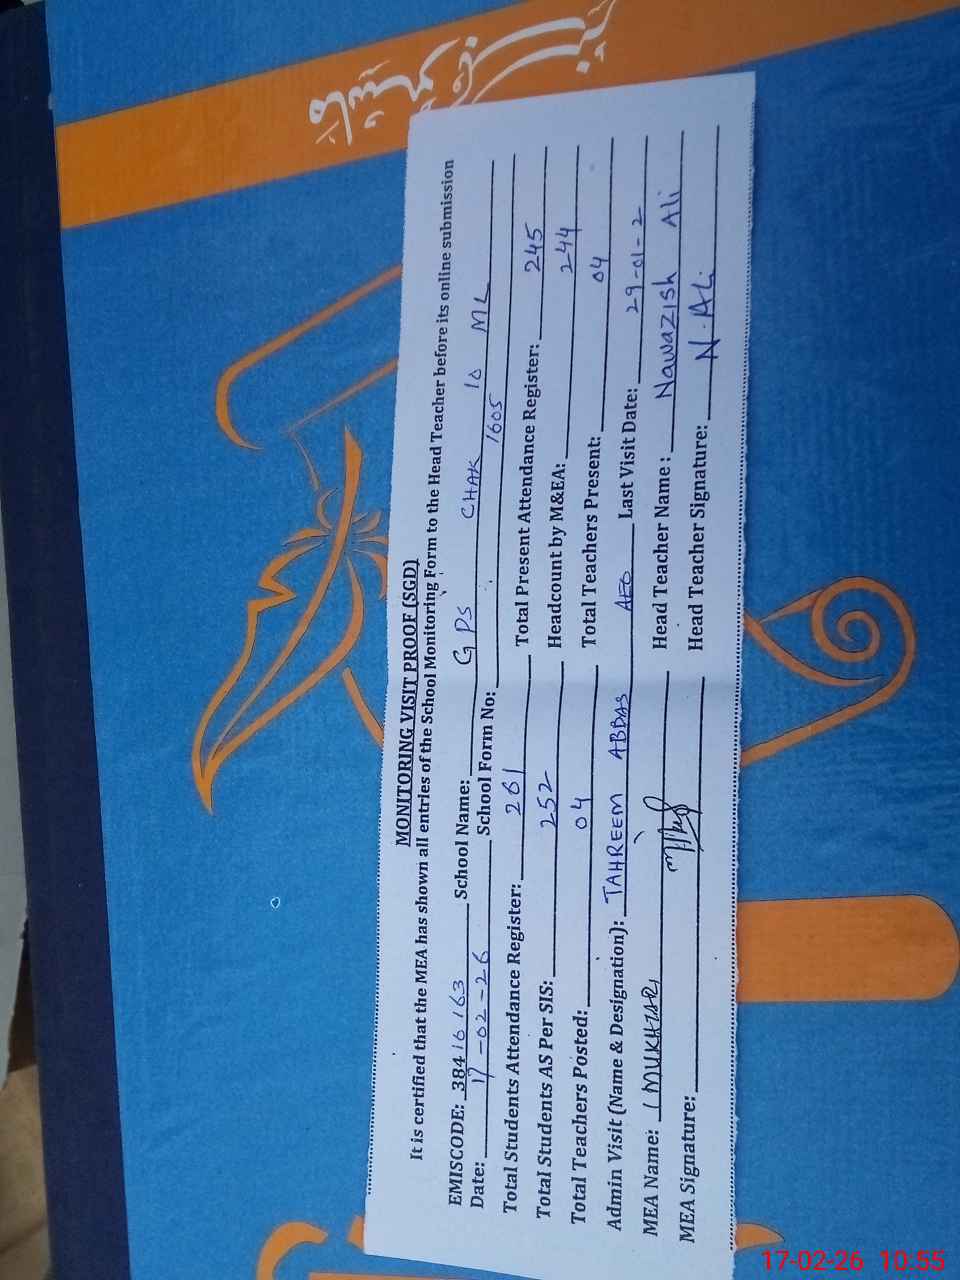 MONITORING VISIT PROOF (SGD)
It is certified that the MEA has shown all entries of the School Monitoring Form to the Head Teacher before its online submission
EMISCODE: 38410163 School Name: GPS CHAK 10 ML
Date: 17-02-26 School Form No: 1605
Total Students Attendance Register: 261 Total Present Attendance Register: 245
Total Students AS Per SIS: 252 Headcount by M&EA: 244
Total Teachers Posted: 04 Total Teachers Present: 04
Admin Visit (Name & Designation): TAHREEM ABBAS AEO Last Visit Date: 29-01-2
MEA Name: MUKHTAR Head Teacher Name: Nawazish Ali
MEA Signature: Head Teacher Signature: N. Ali
17-02-26 10:55